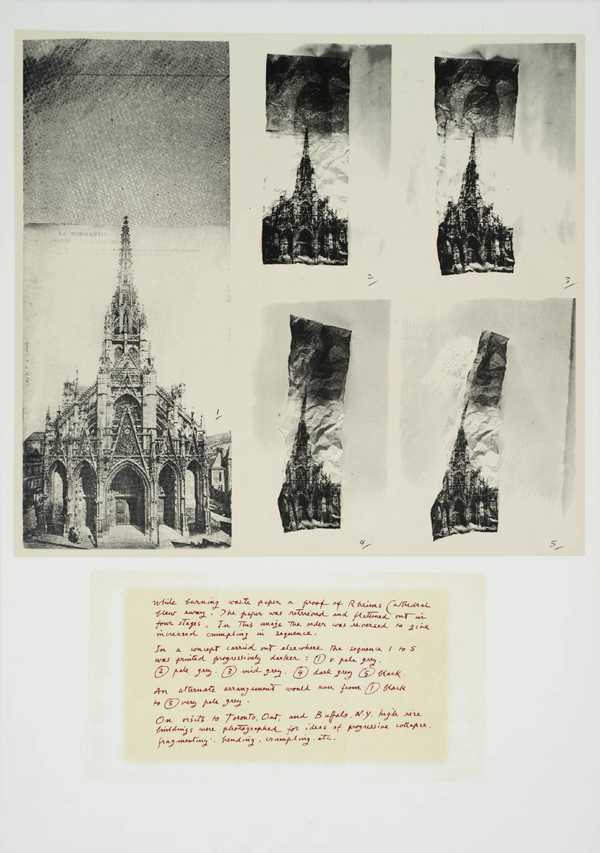 LA NORMANDIE
1
2
3
4
5
While burning waste paper a proof of Rheims Cathedral
blew away. The paper was retrieved and flattened out in
four stages. In this image the order was reversed to give
increased crumpling in sequence.
In a concept carried out elsewhere the sequence 1 to 5
was printed progressively darker: ① v. pale grey.
② pale grey. ③ mid grey. ④ dark grey ⑤ black.
An alternate arrangement would run from ① black
to ⑤ very pale grey.
On visits to Toronto, Ont, and Buffalo, N.Y. high rise
buildings were photographed for ideas of progressive collapse.
fragmenting. bending. crumpling. etc.